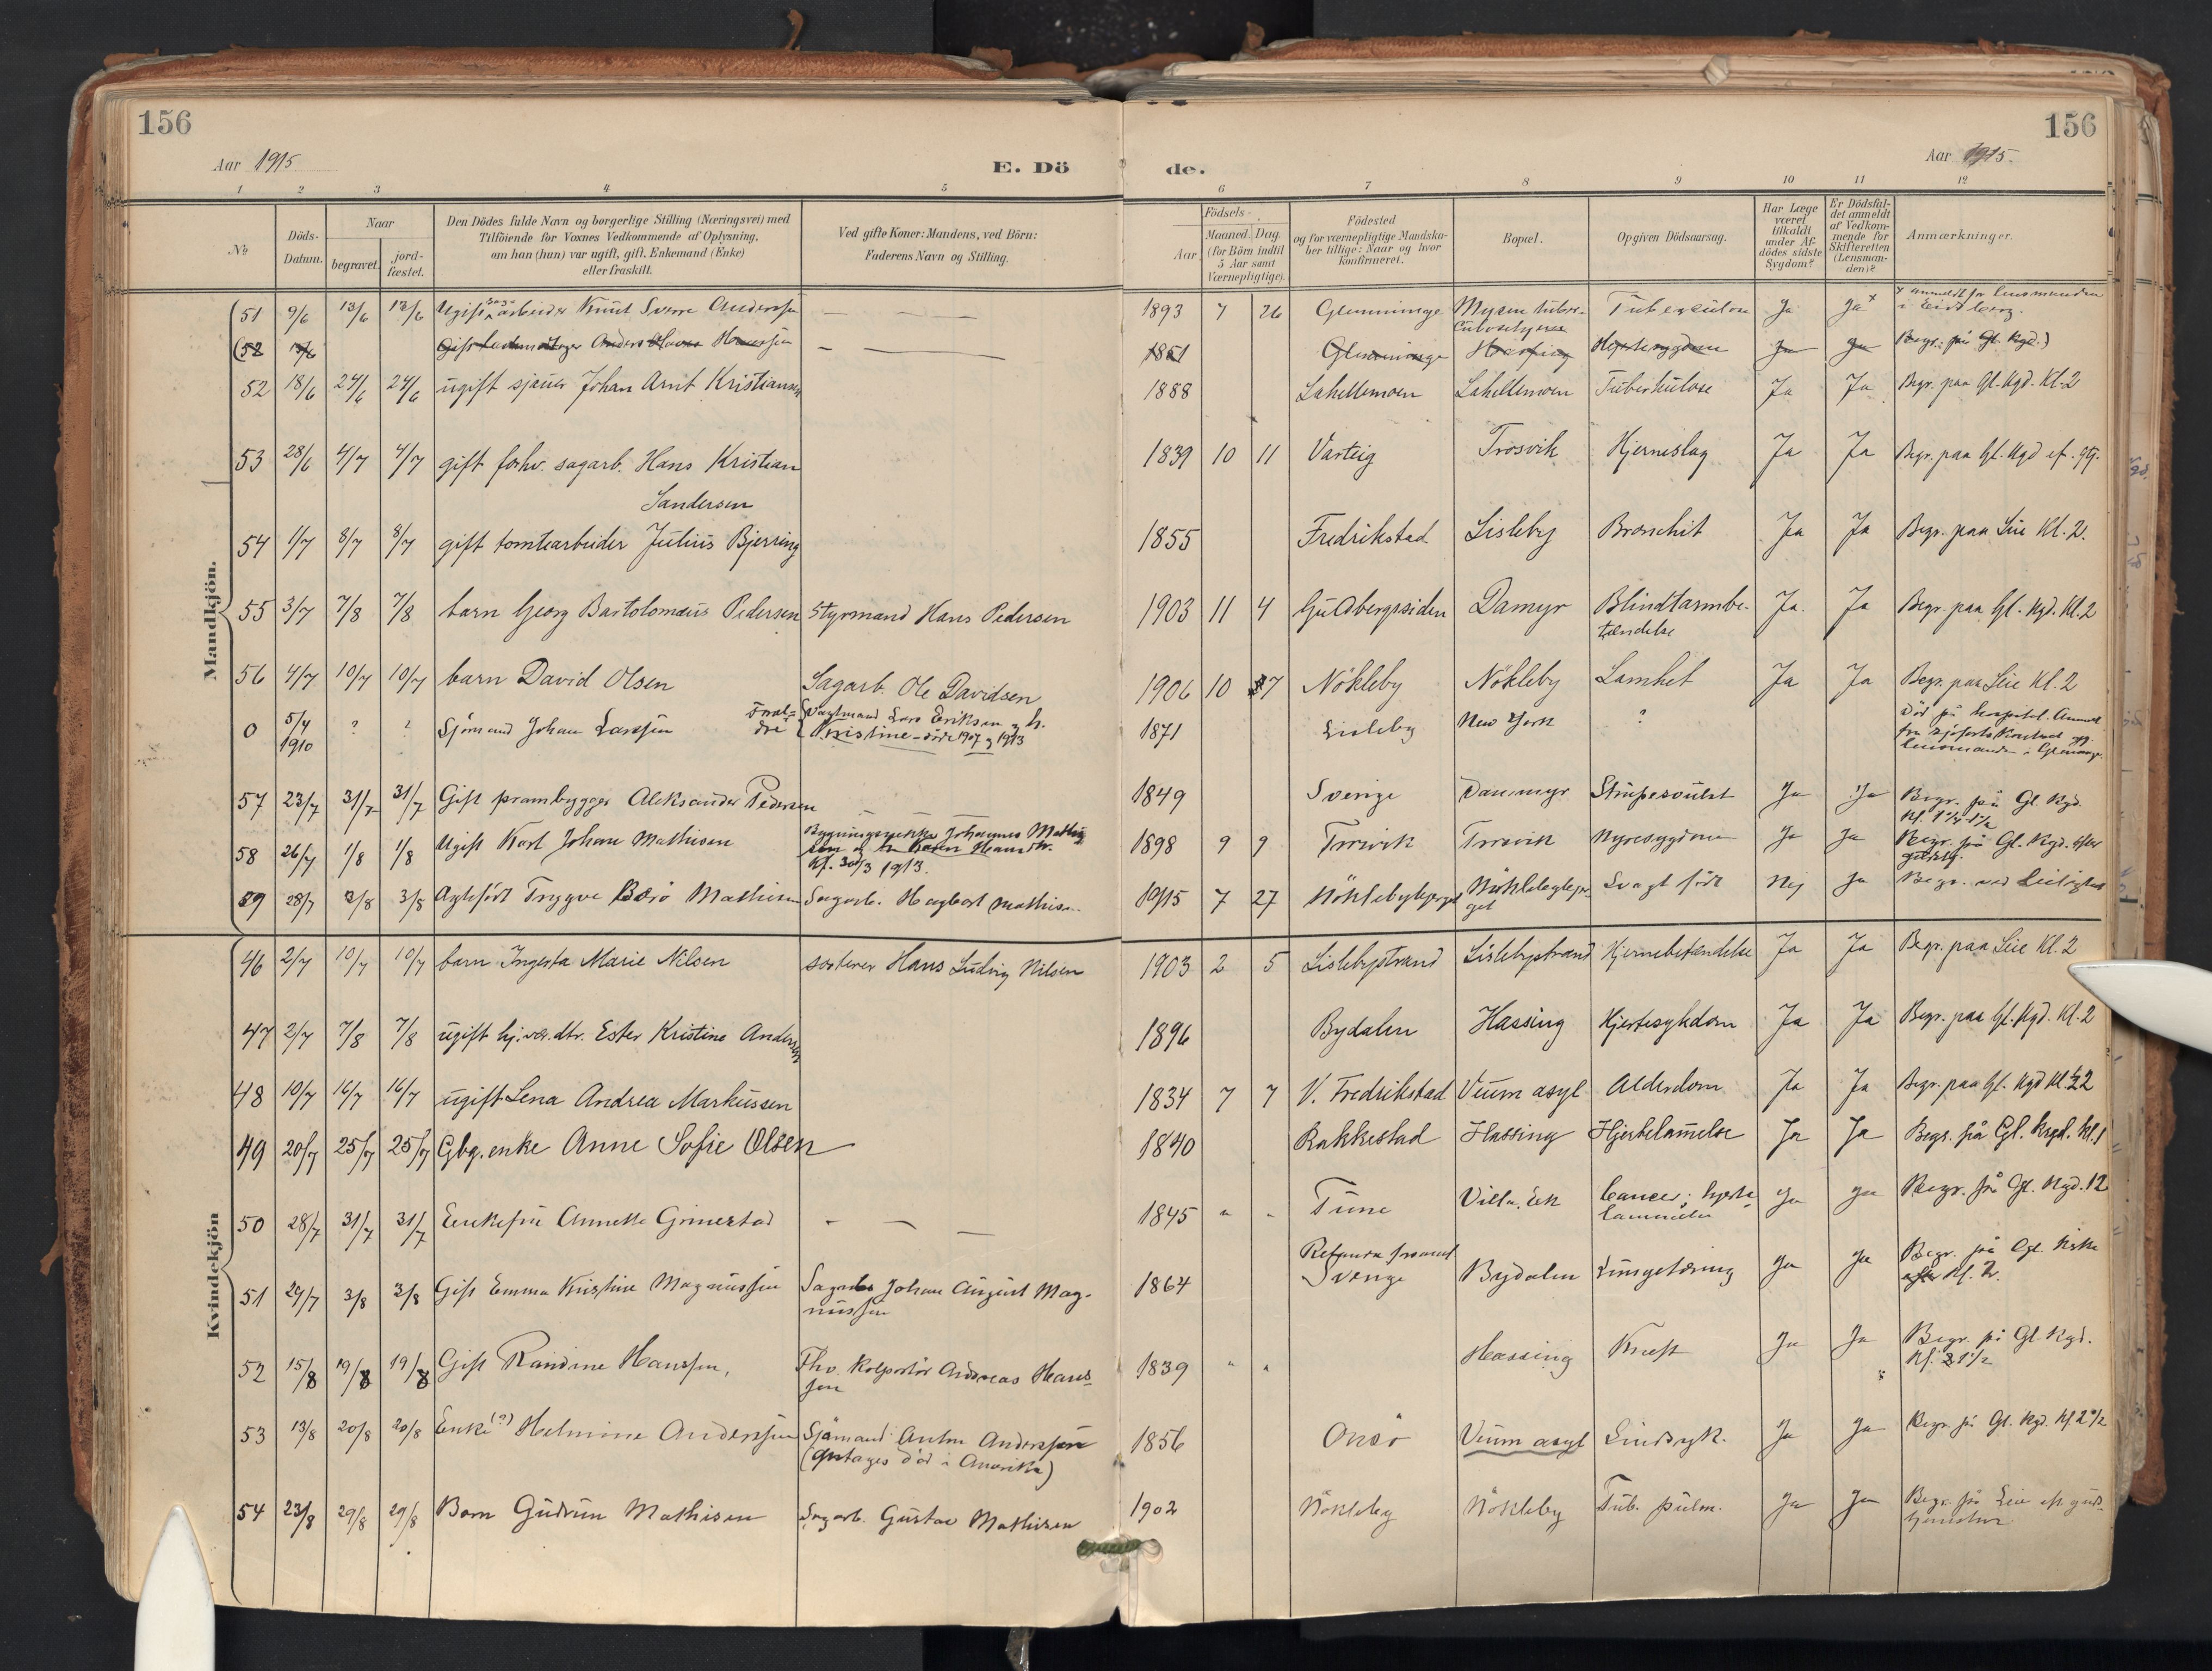 156
156
Aar 1915.
E. Dö
de.
Aar 1915.
1 2 3 4 5 6 7 8 9 10 11 12
No
Döds-
Datum.
Naar
begravet.
jord-
fæstet.
Den Dödes fulde Navn og borgerlige Stilling (Næringsvei) med
Tilföiende for Voxnes Vedkommende af Oplysning,
om han (hun) var ugift, gift, Enkemand (Enke)
eller fraskilt.
Ved gifte Koner: Mandens, ved Börn:
Faderens Navn og Stilling.
Födsels-
Aar.
Maaned. Dag
(for Börn indtil
5 Aar samt
Værnepligtige).
Födested
og for værnepligtige Mandska-
ber tillige: Naar og hvor
Konfirmeret.
Bopæl.
Opgiven Dödsaarsag.
Har Læge
været
tilkaldt
under Af-
dödes sidste
Sygdom?
Er Dödsfal-
det anmeldt
af Vedkom-
mende for
Skifteretten
(Lensman-
den)?
Anmærkninger.
Mandkjön.
51 9/6 13/6 13/6 Ugift arbeider Knut Sverre Anderssen — — 1893 7 26 Glemminge Mysen tuber- Tuberculose Ja Ja x
x anmeldt for lensmanden
i Eidsberg.
(52 Anders Hanssen — — 1851 Glemminge Hassing Hjertesygdom Ja Ja Begr. på Gl. Kgd.)
52 18/6 24/6 24/6 ugift sjauer Johan Arnt Kristiansen 1888 Lahellemoen Lahellemoen Tuberkulose Ja Ja Begr. paa Gl. Kgd. Kl. 2
53 28/6 4/7 4/7 gift forhv. sagarb. Hans Kristian
Sandersen
1839 10 11 Varteig Trosvik Hjerneslag Ja Ja Begr. paa Gl. Kgd ef. gtj.
54 1/7 8/7 8/7 gift tomtearbeider Julius Bjerring 1855 Fredrikstad Lisleby Bronchit Ja Ja Begr. paa Leie Kl. 2.
55 3/7 7/8 7/8 barn Georg Bartolomæus Pedersen Styrmand Hans Pedersen 1903 11 4 Gudbergssiden Damyr Blindtarmbe-
tændelse
Ja. Ja Begr. paa Gl. Kgd. Kl. 2
56 4/7 10/7 10/7 barn David Olsen Sagarb. Ole Davidsen 1906 10 7 Nökleby Nökleby Lamhet Ja Ja Begr. paa Leie Kl. 2
0 5/4
1910
? ? Sjömand Johan Larssen Foræl-
dre
Vagtmand Lars Eriksen og h.
Kristine – döde 1907 og 1913
1871 Lisleby New York ?
Död på hospital. Anmeldt
fra Sjöfartskontoret og
lensmanden i Glemminge.
57 23/7 31/7 31/7 Gift prambygger Aleksander Pedersen — 1849 Sverige Dammyr Strupesvulst Ja Ja Begr. på Gl. Kgd.
58 26/7 1/8 1/8 Ugift Karl Johan Mathisen
Johannes Mathi-
sen og h. Karen Hansdtr.
Kf. 30/3 1913.
1898 9 9 Trosvik Trosvik Nyresygdom Ja Ja Begr. på Gl. Kgd. efter
59 28/7 3/8 3/8 Ægtefödt Trygve Mathisen Sagarb. Hagbart Mathisen 1915 7 27 Nöklebybjerget Nöklebybjer-
get
Svagt födt Nej Ja Begr. ved Leilighed
Kvindekjön
46 2/7 10/7 10/7 barn Ingerta Marie Nilsen sorterer Hans Ludvig Nilsen 1903 2 5 Lislebystrand Lislebystrand Hjernebetændelse Ja Ja Begr. paa Leie Kl. 2
47 2/7 7/8 7/8 ugift hj.vær. dtr. Ester Kristine Andersen 1896 Bydalen Hassing Hjertesykdom Ja Ja Begr. paa Gl. Kgd. Kl. 2
48 10/7 16/7 16/7 ugift Lena Andrea Markussen 1834 7 7 V. Fredrikstad Veum asyl Alderdom Ja Ja Begr. paa Gl. Kgd Kl. 2
49 20/7 25/7 25/7 Gbg. enke Anne Sofie Olsen 1840 Rakkestad Hassing Hjertelammelse Ja Ja Begr. på Gl. Krgd. Kl. 1
50 28/7 31/7 31/7 Enkefru Annette Grimestad – — — 1845 " - Tune Villa Ek Cancer; hjerte-
lammelse
Ja Ja Begr. på Gl. Kgd. 12
51 29/7 3/8 3/8 Gift Emma Kristine Magnussen Sagarb. Johan August Mag-
nussen
1864
Sverige Bydalen Lungetæring Ja Ja Begr. på Gl. Kirke
Kl. 2.
52 15/8 19/8 19/8 Gift Randine Hanssen, Fhv. Kolportör Andreas Hans-
sen
1839 " " Hassing Kræft Ja Ja Begr. på Gl. Kgd.
Kl. 1 1/2
53 13/8 20/8 20/8 Enke (?) Helmine Anderssen Sjömand Anton Anderssen
(antages död i Amerika)
1856 Onsö Veum asyl Sindssyk. Ja Ja Begr. på Gl. Kgd. Kl 2 1/2
54 23/8 29/8 29/8 Barn Gudrun Mathisen Sagarb. Gustav Mathisen 1902 Nökleby Nökleby Tub. pulm. Ja Ja Begr. på Leie eft. guds-
tjenesten